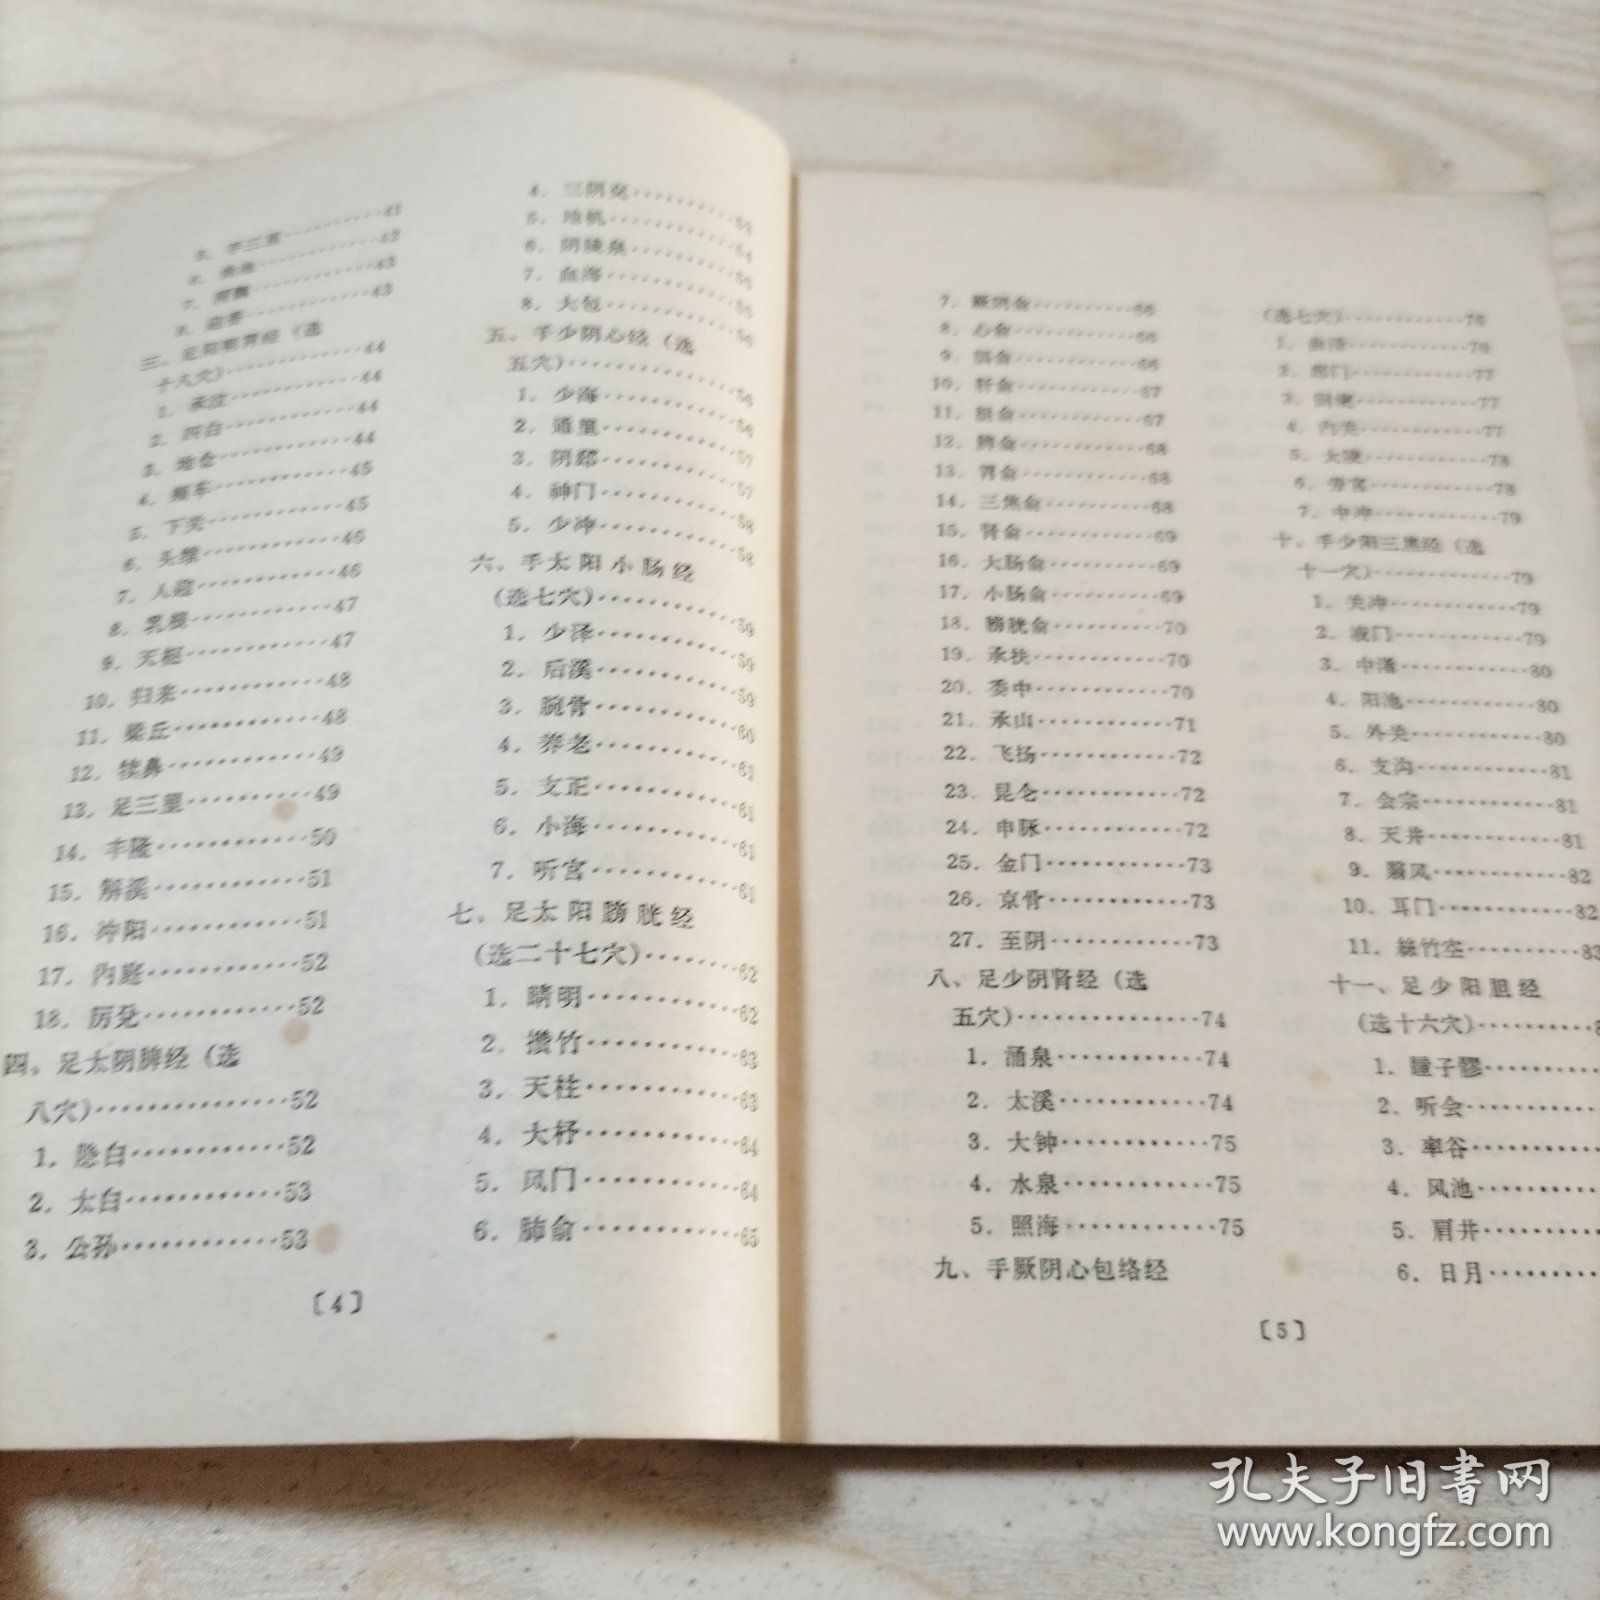 5．手三里…………41
6．曲池…………42
7．肩髃…………43
8．迎香…………43
三、足阳明胃经（选
十八穴）…………44
1．承泣…………44
2．四白…………44
3．地仓…………44
4．颊车…………45
5．下关…………45
6．头维…………46
7．人迎…………46
8．乳根…………47
9．天枢…………47
10．归来…………48
11．梁丘…………48
12．犊鼻…………49
13．足三里…………49
14．丰隆…………50
15．解溪…………51
16．冲阳…………51
17．内庭…………52
18．厉兑…………52
四、足太阴脾经（选
八穴）…………52
1．隐白…………52
2．太白…………53
3．公孙…………53
〔4〕
4．三阴交…………
5．地机…………
6．阴陵泉…………
7．血海…………
8．大包…………
五、手少阴心经（选
五穴）…………56
1．少海…………56
2．通里…………57
3．阴郄…………57
4．神门…………58
5．少冲…………58
六、手太阳小肠经
（选七穴）…………59
1．少泽…………59
2．后溪…………59
3．腕骨…………60
4．养老…………61
5．支正…………61
6．小海…………61
7．听宫…………61
七、足太阳膀胱经
（选二十七穴）…………62
1．睛明…………62
2．攒竹…………63
3．天柱…………63
4．大杼…………64
5．风门…………64
6．肺俞…………65
7．厥阴俞…………66
8．心俞…………66
9．膈俞…………66
10．肝俞…………67
11．胆俞…………67
12．脾俞…………68
13．胃俞…………68
14．三焦俞…………68
15．肾俞…………69
16．大肠俞…………69
17．小肠俞…………69
18．膀胱俞…………70
19．承扶…………70
20．委中…………70
21．承山…………71
22．飞扬…………72
23．昆仑…………72
24．申脉…………72
25．金门…………73
26．京骨…………73
27．至阴…………73
八、足少阴肾经（选
五穴）…………74
1．涌泉…………74
2．太溪…………74
3．大钟…………75
4．水泉…………75
5．照海…………75
九、手厥阴心包络经
（选七穴）…………76
1．曲泽…………76
2．郄门…………77
3．间使…………77
4．内关…………77
5．大陵…………78
6．劳宫…………78
7．中冲…………79
十、手少阳三焦经（选
十一穴）…………79
1．关冲…………79
2．液门…………79
3．中渚…………80
4．阳池…………80
5．外关…………80
6．支沟…………81
7．会宗…………81
8．天井…………81
9．翳风…………82
10．耳门…………82
11．丝竹空…………83
十一、足少阳胆经
（选十六穴）…………
1．瞳子髎…………
2．听会…………
3．率谷…………
4．风池…………
5．肩井…………
6．日月…………
〔5〕
孔夫子旧书网
www.kongfz.com